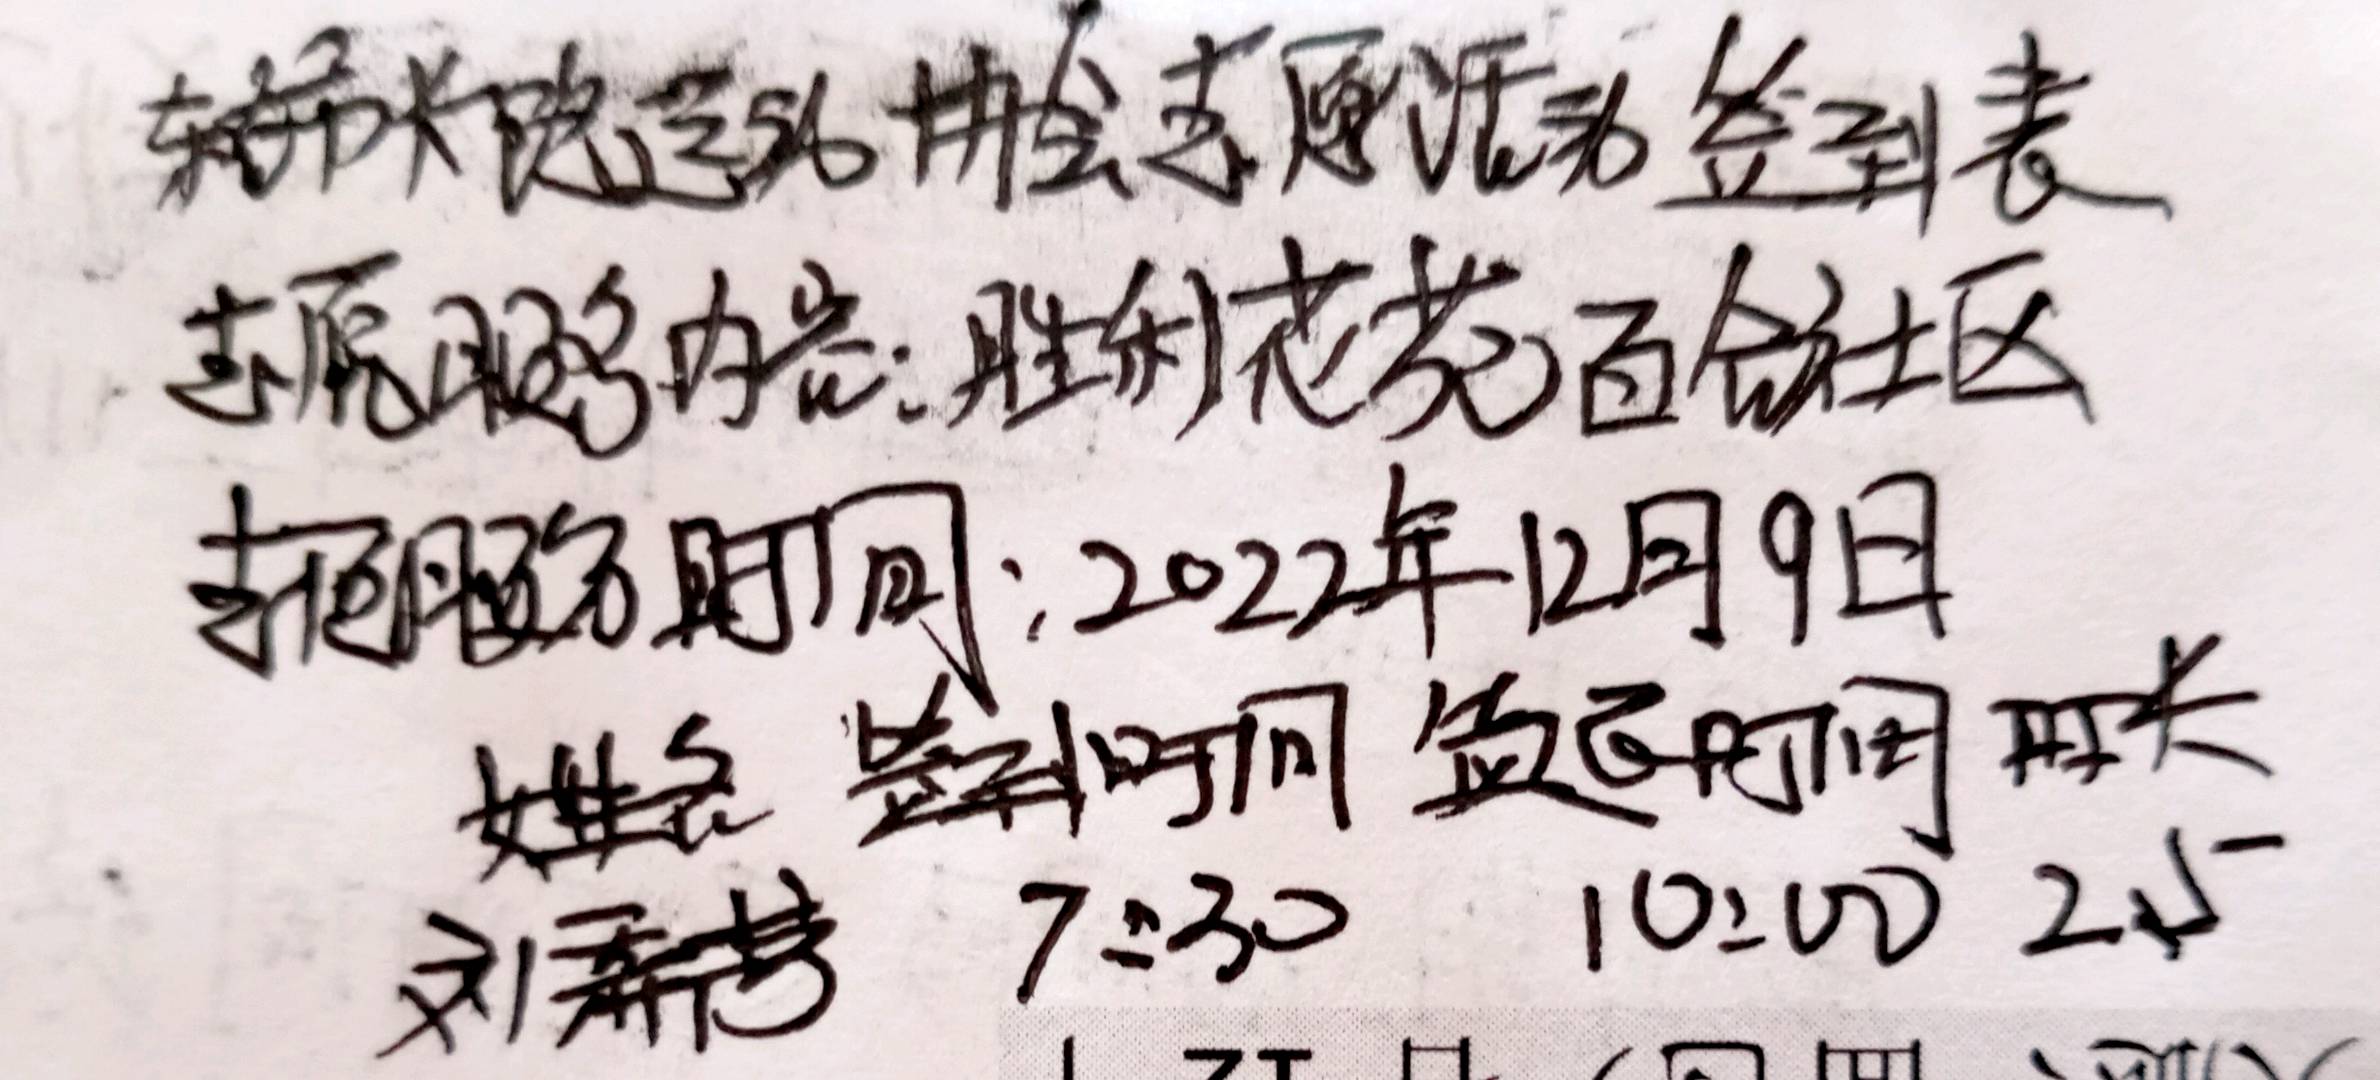 志愿活动签到表
志愿服务内容:胜利花苑百合社区
志愿服务时间:2022年12月9日
姓名 签到时间 签退时间 时长
刘 7:30 10:00 2.5